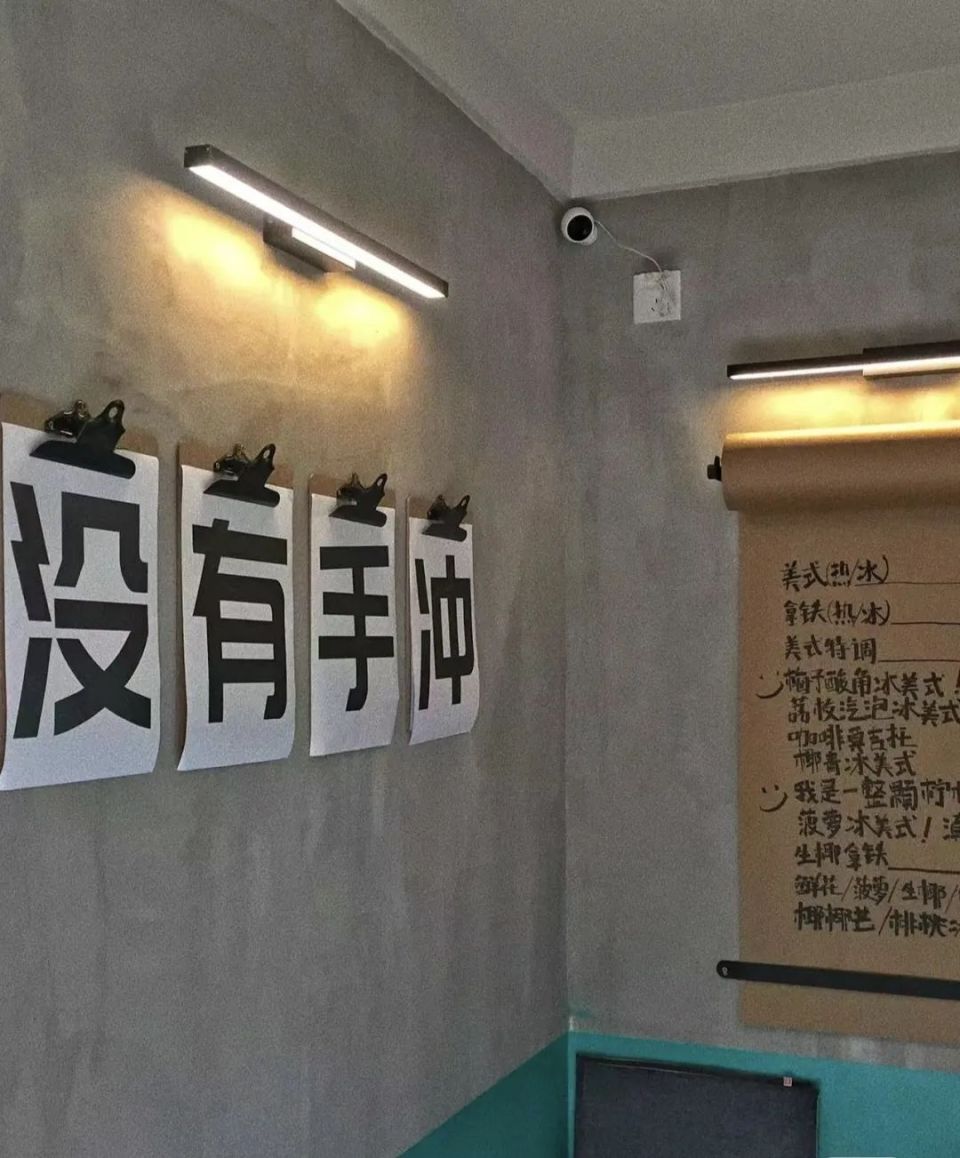 没有手冲
美式(热/冰)
拿铁(热/冰)
美式特调
梅子酸角冰美式!
荔枝汽泡冰美式
咖啡莫吉托
椰青冰美式
我是一整颗柠
菠萝冰美式!
生椰拿铁
鲜花/菠萝/生椰/
椰椰芒/桃桃